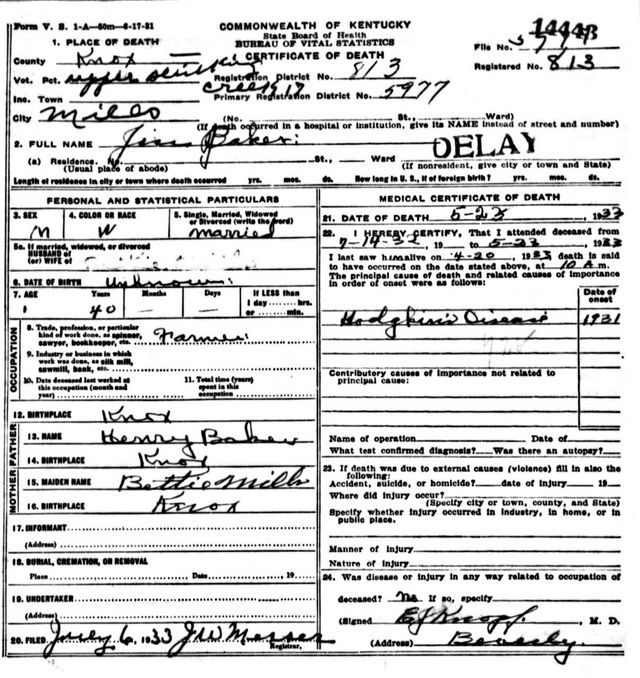 Form V. S. 1-A—50m—6-17-31
COMMONWEALTH OF KENTUCKY
State Board of Health
BUREAU OF VITAL STATISTICS
CERTIFICATE OF DEATH
File No.
Registered No. 813
1. PLACE OF DEATH
County Knox
Vot. Pct. upper
creek 17
Registration District No. 813
Primary Registration District No. 5977
Inc. Town
City Mills (No. St., Ward)
(If death occurred in a hospital or institution, give its NAME instead of street and number)
2. FULL NAME Jim Baker
DELAY
(a) Residence. No. St., Ward
(Usual place of abode) (If nonresident, give city or town and State)
Length of residence in city or town where death occurred yrs. mos. ds. How long in U. S., if of foreign birth? yrs. mos. ds.
PERSONAL AND STATISTICAL PARTICULARS
3. SEX 4. COLOR OR RACE 5. Single, Married, Widowed
or Divorced (write the word)
M W married
5a. If married, widowed, or divorced
HUSBAND of
(or) WIFE of
6. DATE OF BIRTH unknown
7. AGE Years Months Days If LESS than
1 day hrs.
or min.
40 — —
OCCUPATION
8. Trade, profession, or particular
kind of work done, as spinner,
sawyer, bookkeeper, etc. Farmer
9. Industry or business in which
work was done, as silk mill,
sawmill, bank, etc.
10. Date deceased last worked at
this occupation (month and
year)
11. Total time (years)
spent in this
occupation
12. BIRTHPLACE Knox
FATHER
13. NAME Henry Baker
14. BIRTHPLACE Knox
MOTHER
15. MAIDEN NAME Bettie Mills
16. BIRTHPLACE Knox
17. INFORMANT
(Address)
18. BURIAL, CREMATION, OR REMOVAL
Place Date 19
19. UNDERTAKER
(Address)
20. FILED July 6, 1933 J W Messer
Registrar.
MEDICAL CERTIFICATE OF DEATH
21. DATE OF DEATH 5-23, 1933
22. I HEREBY CERTIFY, That I attended deceased from
7-14-32, 19 to 5-23, 1933
I last saw him alive on 4-20, 1933 death is said
to have occurred on the date stated above, at 10 A m.
The principal cause of death and related causes of importance
in order of onset were as follows:
Date of
onset
Hodgkin's Disease 1931
Contributory causes of importance not related to
principal cause:
Name of operation Date of
What test confirmed diagnosis? Was there an autopsy?
23. If death was due to external causes (violence) fill in also the
following:
Accident, suicide, or homicide? date of injury 19
Where did injury occur?
(Specify city or town, county, and State)
Specify whether injury occurred in industry, in home, or in
public place.
Manner of injury
Nature of injury
24. Was disease or injury in any way related to occupation of
deceased? No If so, specify
(Signed E J Knopf, M. D.
(Address) Beverly